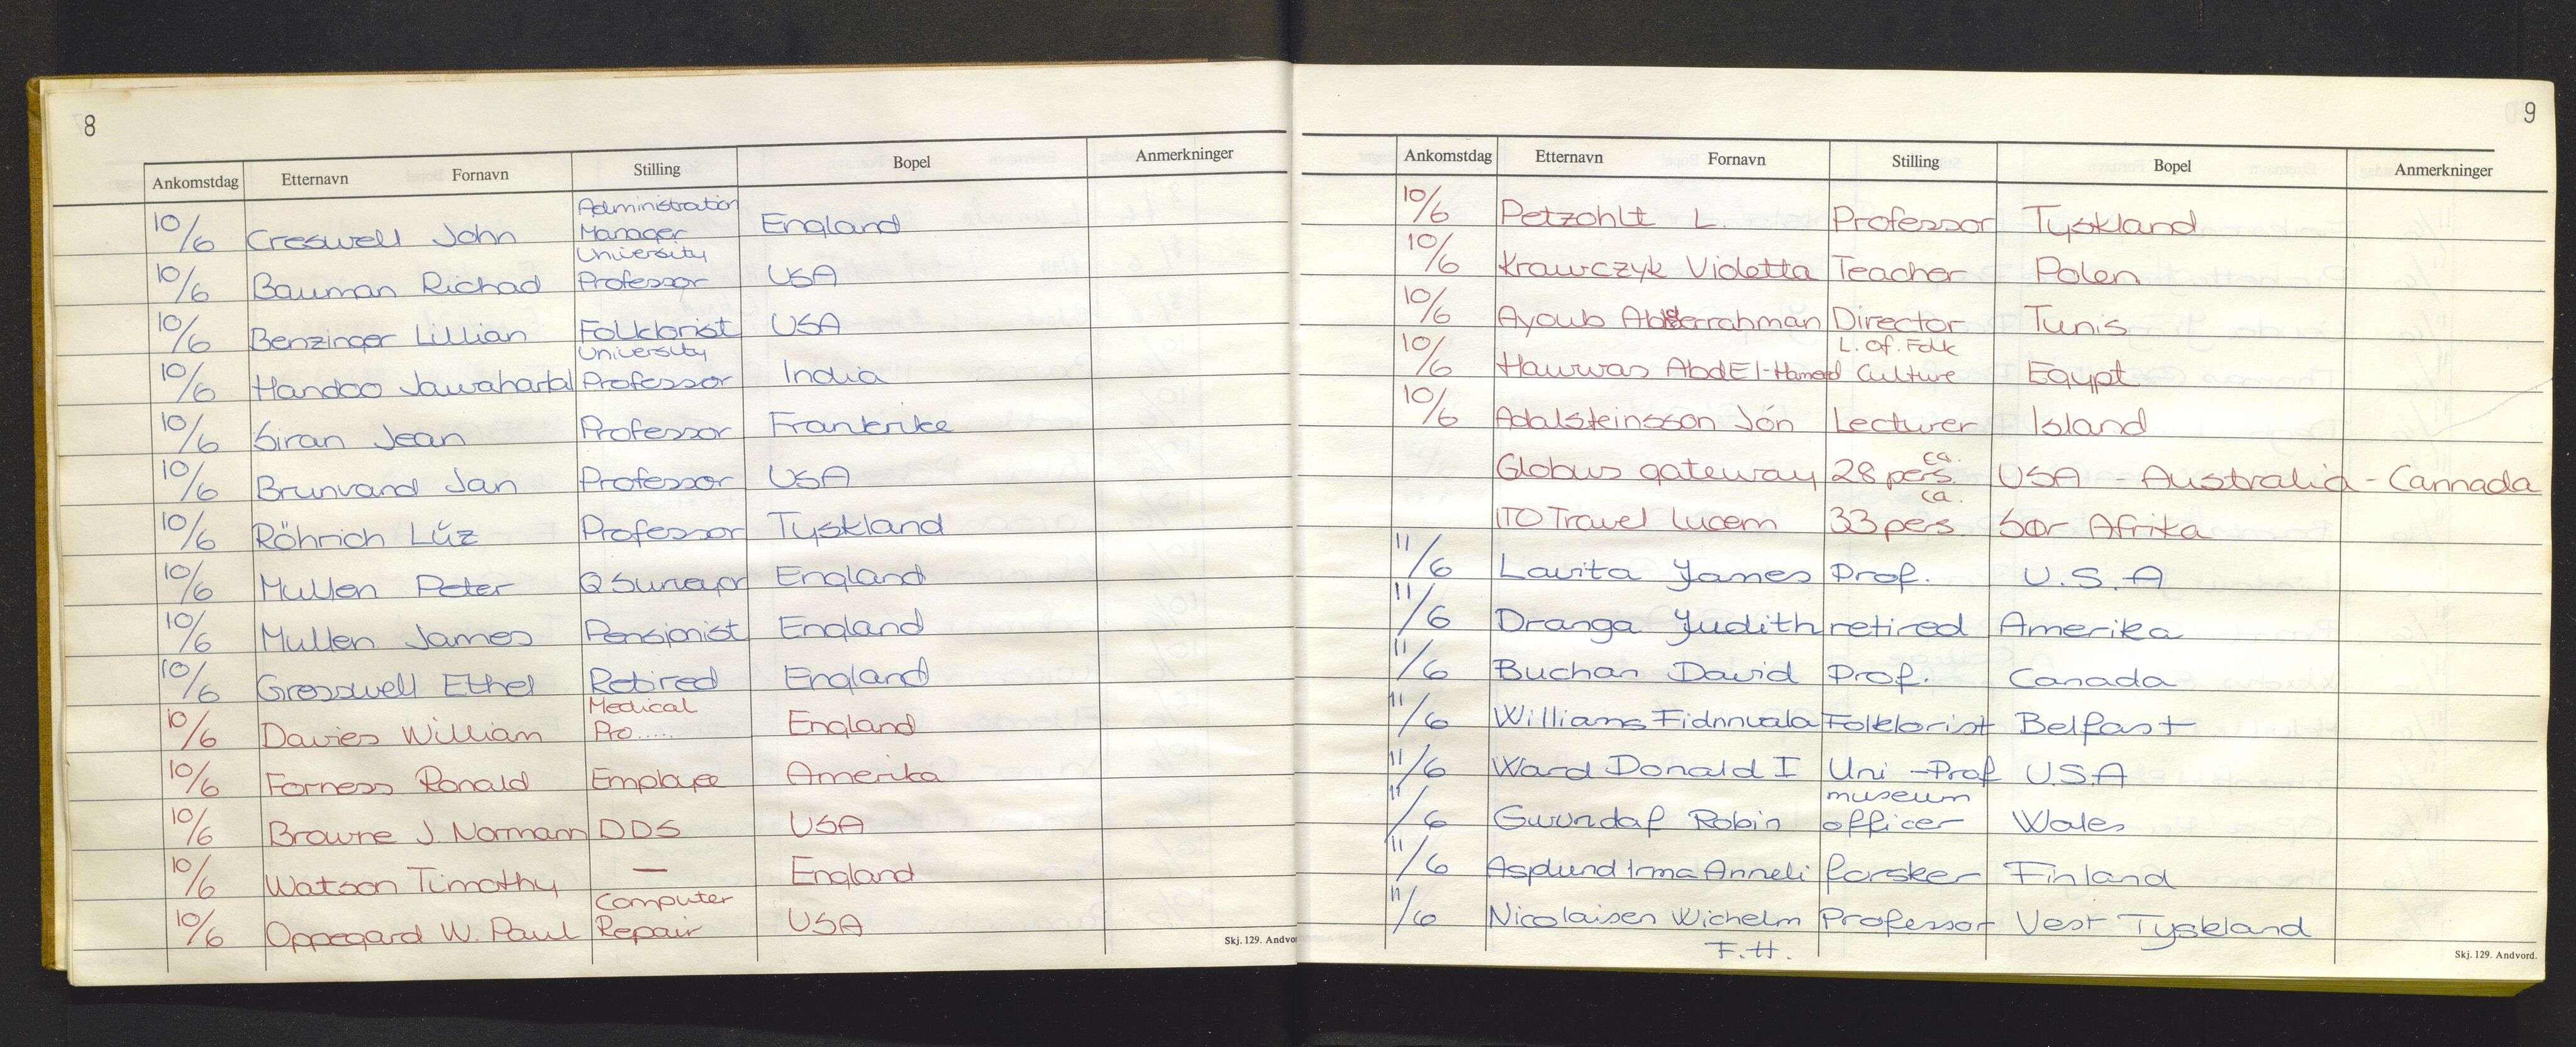 8
Ankomstdag Etternavn Fornavn Stilling Bopel Anmerkninger
10/6 Creswell John Administration Manager England
10/6 Bauman Richad University Professor USA
10/6 Benzinger Lillian Folklorist USA
10/6 Handoo Jawaharlal University Professor India
10/6 Siran Jean Professor Frankrike
10/6 Brunvand Jan Professor USA
10/6 Röhrich Lüz Professor Tyskland
10/6 Mullen Peter Q Surveyor England
10/6 Mullen James Pensjonist England
10/6 Gresswell Ethel Retired England
10/6 Davies William Medical Pro..... England
10/6 Forness Ronald Employee Amerika
10/6 Browne J. Normann DDS USA
10/6 Watson Timothy — England
10/6 Oppegard W. Paul Computer Repair USA
Skj. 129. Andvo
9
Ankomstdag Etternavn Fornavn Stilling Bopel Anmerkninger
10/6 Petzohlt L. Professor Tyskland
10/6 Krawczyk Violetta Teacher Polen
10/6 Ayoub Abderrahman Director Tunis
10/6 Hawwas Abd El-Hameed L. Of. Folk Culture Egypt
10/6 Adalsteinsson Jón Lecturer Island
Globus gateway ca. 28 pers. USA - Australia - Cannada
ITO Travel Lucern ca. 33 pers. Sør Afrika
11/6 Lavita James Prof. U.S.A
11/6 Dranga Judith retired Amerika
11/6 Buchan David Prof. Canada
11/6 Williams Fidnnuala Folklorist Belfast
11/6 Ward Donald I Uni-Prof U.S.A
11/6 Gwyndaf Robin museum officer Wales
11/6 Asplund Irma Anneli forsker Finland
11/6 Nicolaisen Wichelm Professor Vest Tyskland
F.H.
Skj. 129. Andvord.